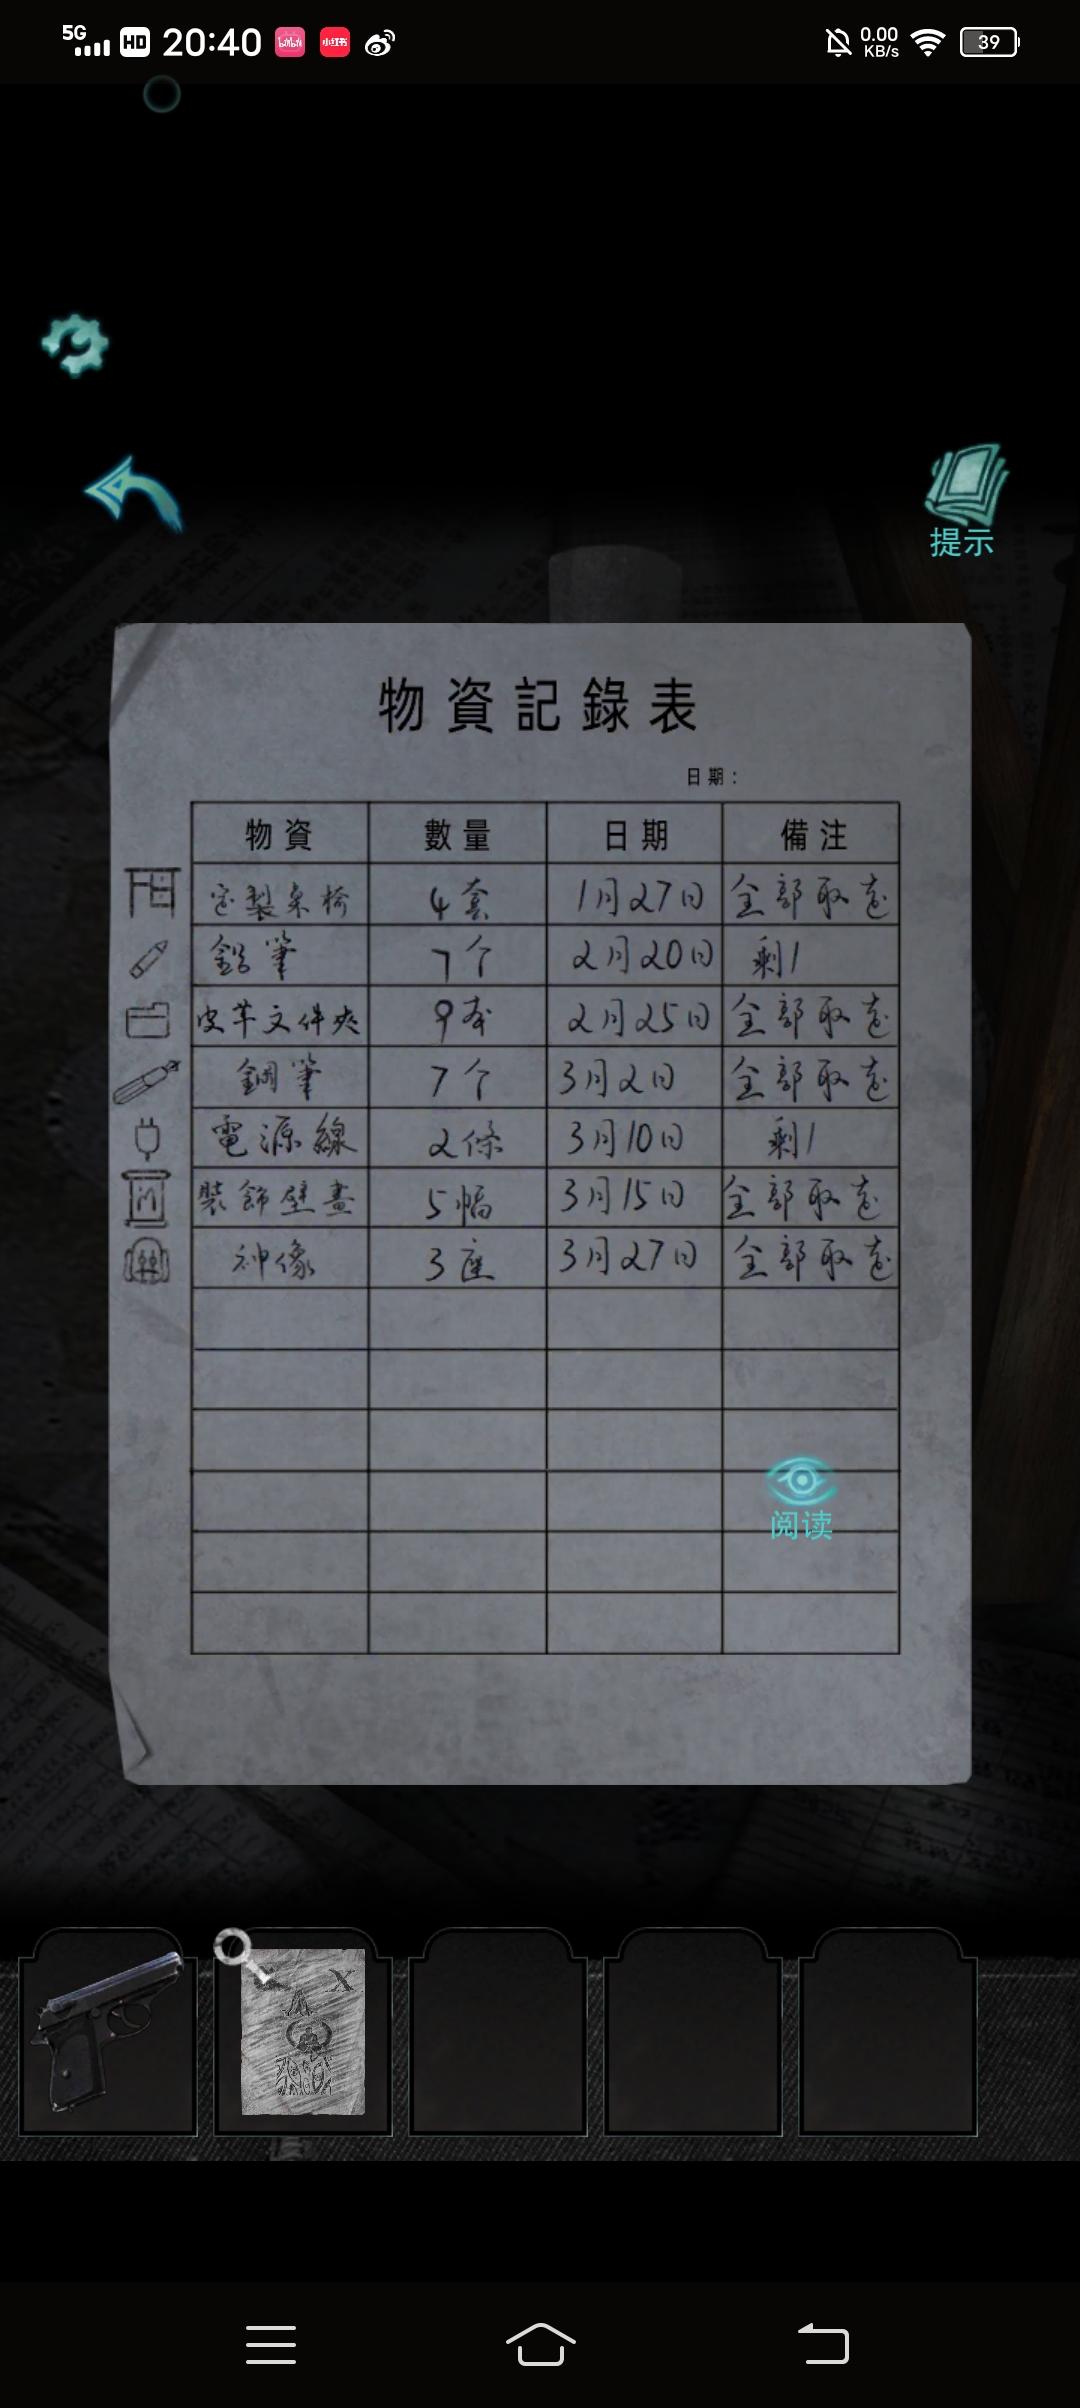 5G HD 20:40 bilibili 小红书 0.00 KB/s 39
提示
物資記錄表
日期：
物資 數量 日期 備注
定製桌椅 4套 1月27日 全部取走
鉛筆 7个 2月20日 剩1
皮革文件夾 9本 2月25日 全部取走
鋼筆 7个 3月2日 全部取走
電源線 2條 3月10日 剩1
裝飾壁畫 5幅 3月15日 全部取走
神像 3座 3月27日 全部取走
阅读
X